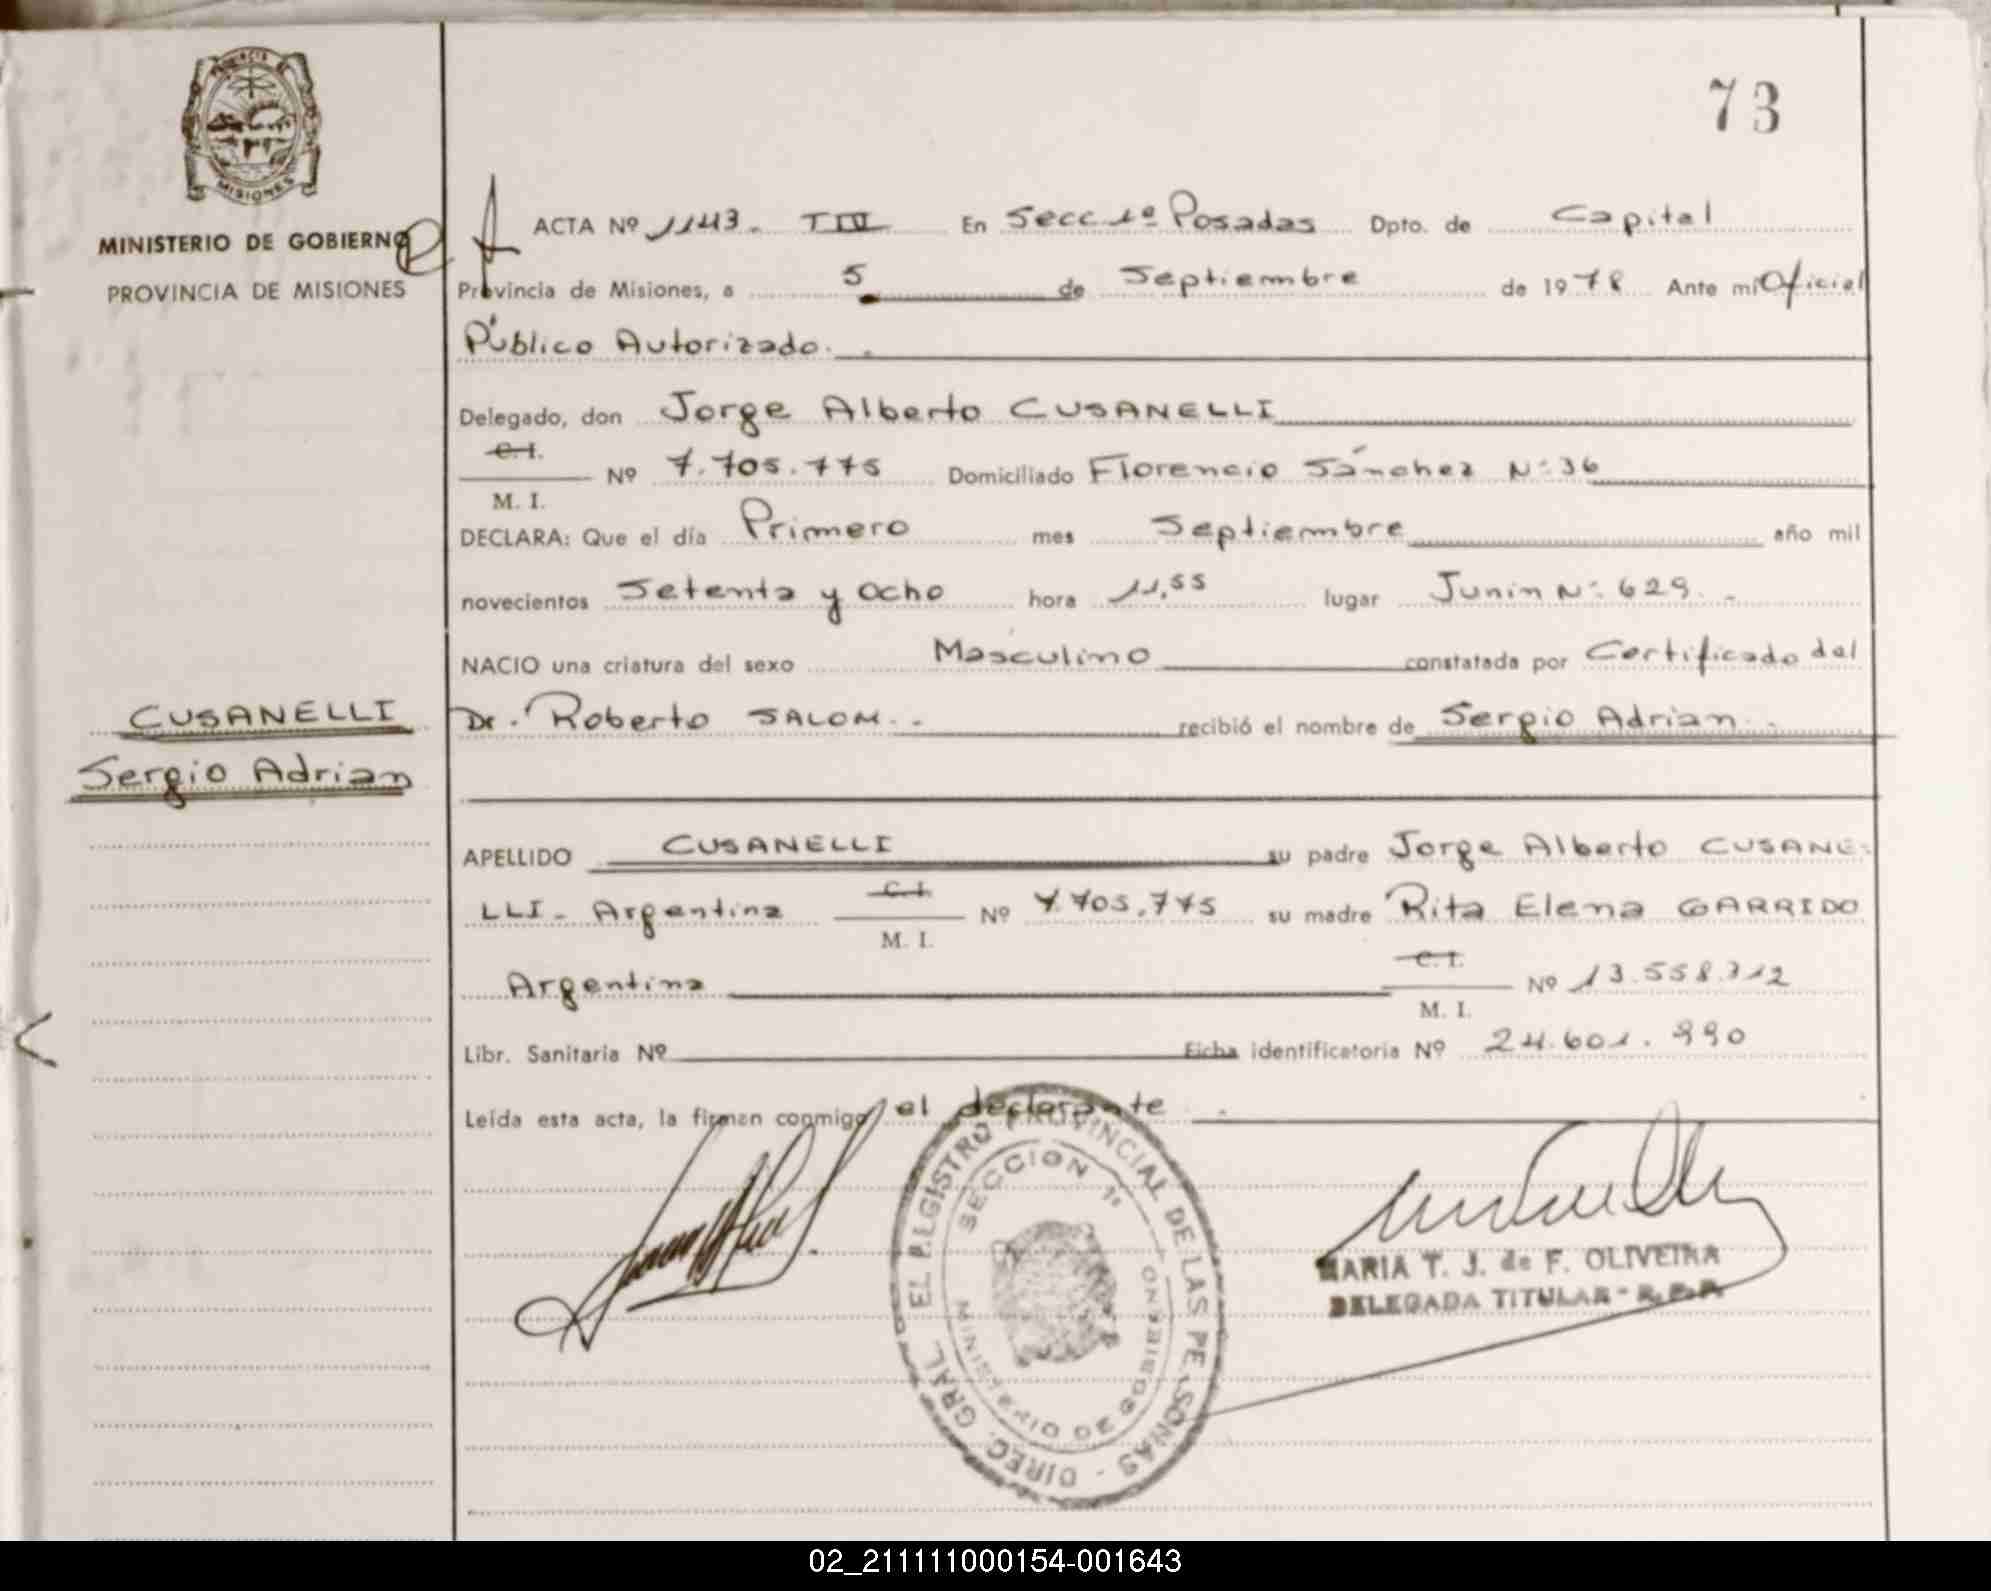 PROVINCIA DE
MISIONES
MINISTERIO DE GOBIERNO
PROVINCIA DE MISIONES
73
ACTA Nº 1143. TIV En Secc 1º Posadas Dpto. de Capital
Provincia de Misiones, a 5 de Septiembre de 1978 Ante mi Oficial
Público Autorizado.
Delegado, don Jorge Alberto CUSANELLI
C. I.
M. I. Nº 7.705.775 Domiciliado Florencio Sánchez Nº 36
DECLARA: Que el día Primero mes Septiembre año mil
novecientos Setenta y Ocho hora 11,55 lugar Junin Nº 629.
NACIO una criatura del sexo Masculino constatada por Certificado del
Dr. Roberto SALOM. recibió el nombre de Sergio Adrian
CUSANELLI
Sergio Adrian
APELLIDO CUSANELLI su padre Jorge Alberto CUSANE-
LLI - Argentina C. I. M. I. Nº 7.705.775 su madre Rita Elena GARRIDO
Argentina C. I. M. I. Nº 13.558.712
Libr. Sanitaria Nº Ficha identificatoria Nº 24.601.990
Leída esta acta, la firman conmigo el declarante.
DIREC. GRAL. EL REGISTRO PROVINCIAL DE LAS PERSONAS -
SECCION 1º
MINISTERIO DE GOBIERNO
MARIA T. J. de F. OLIVEIRA
DELEGADA TITULAR - R.P.P.
02_211111000154-001643